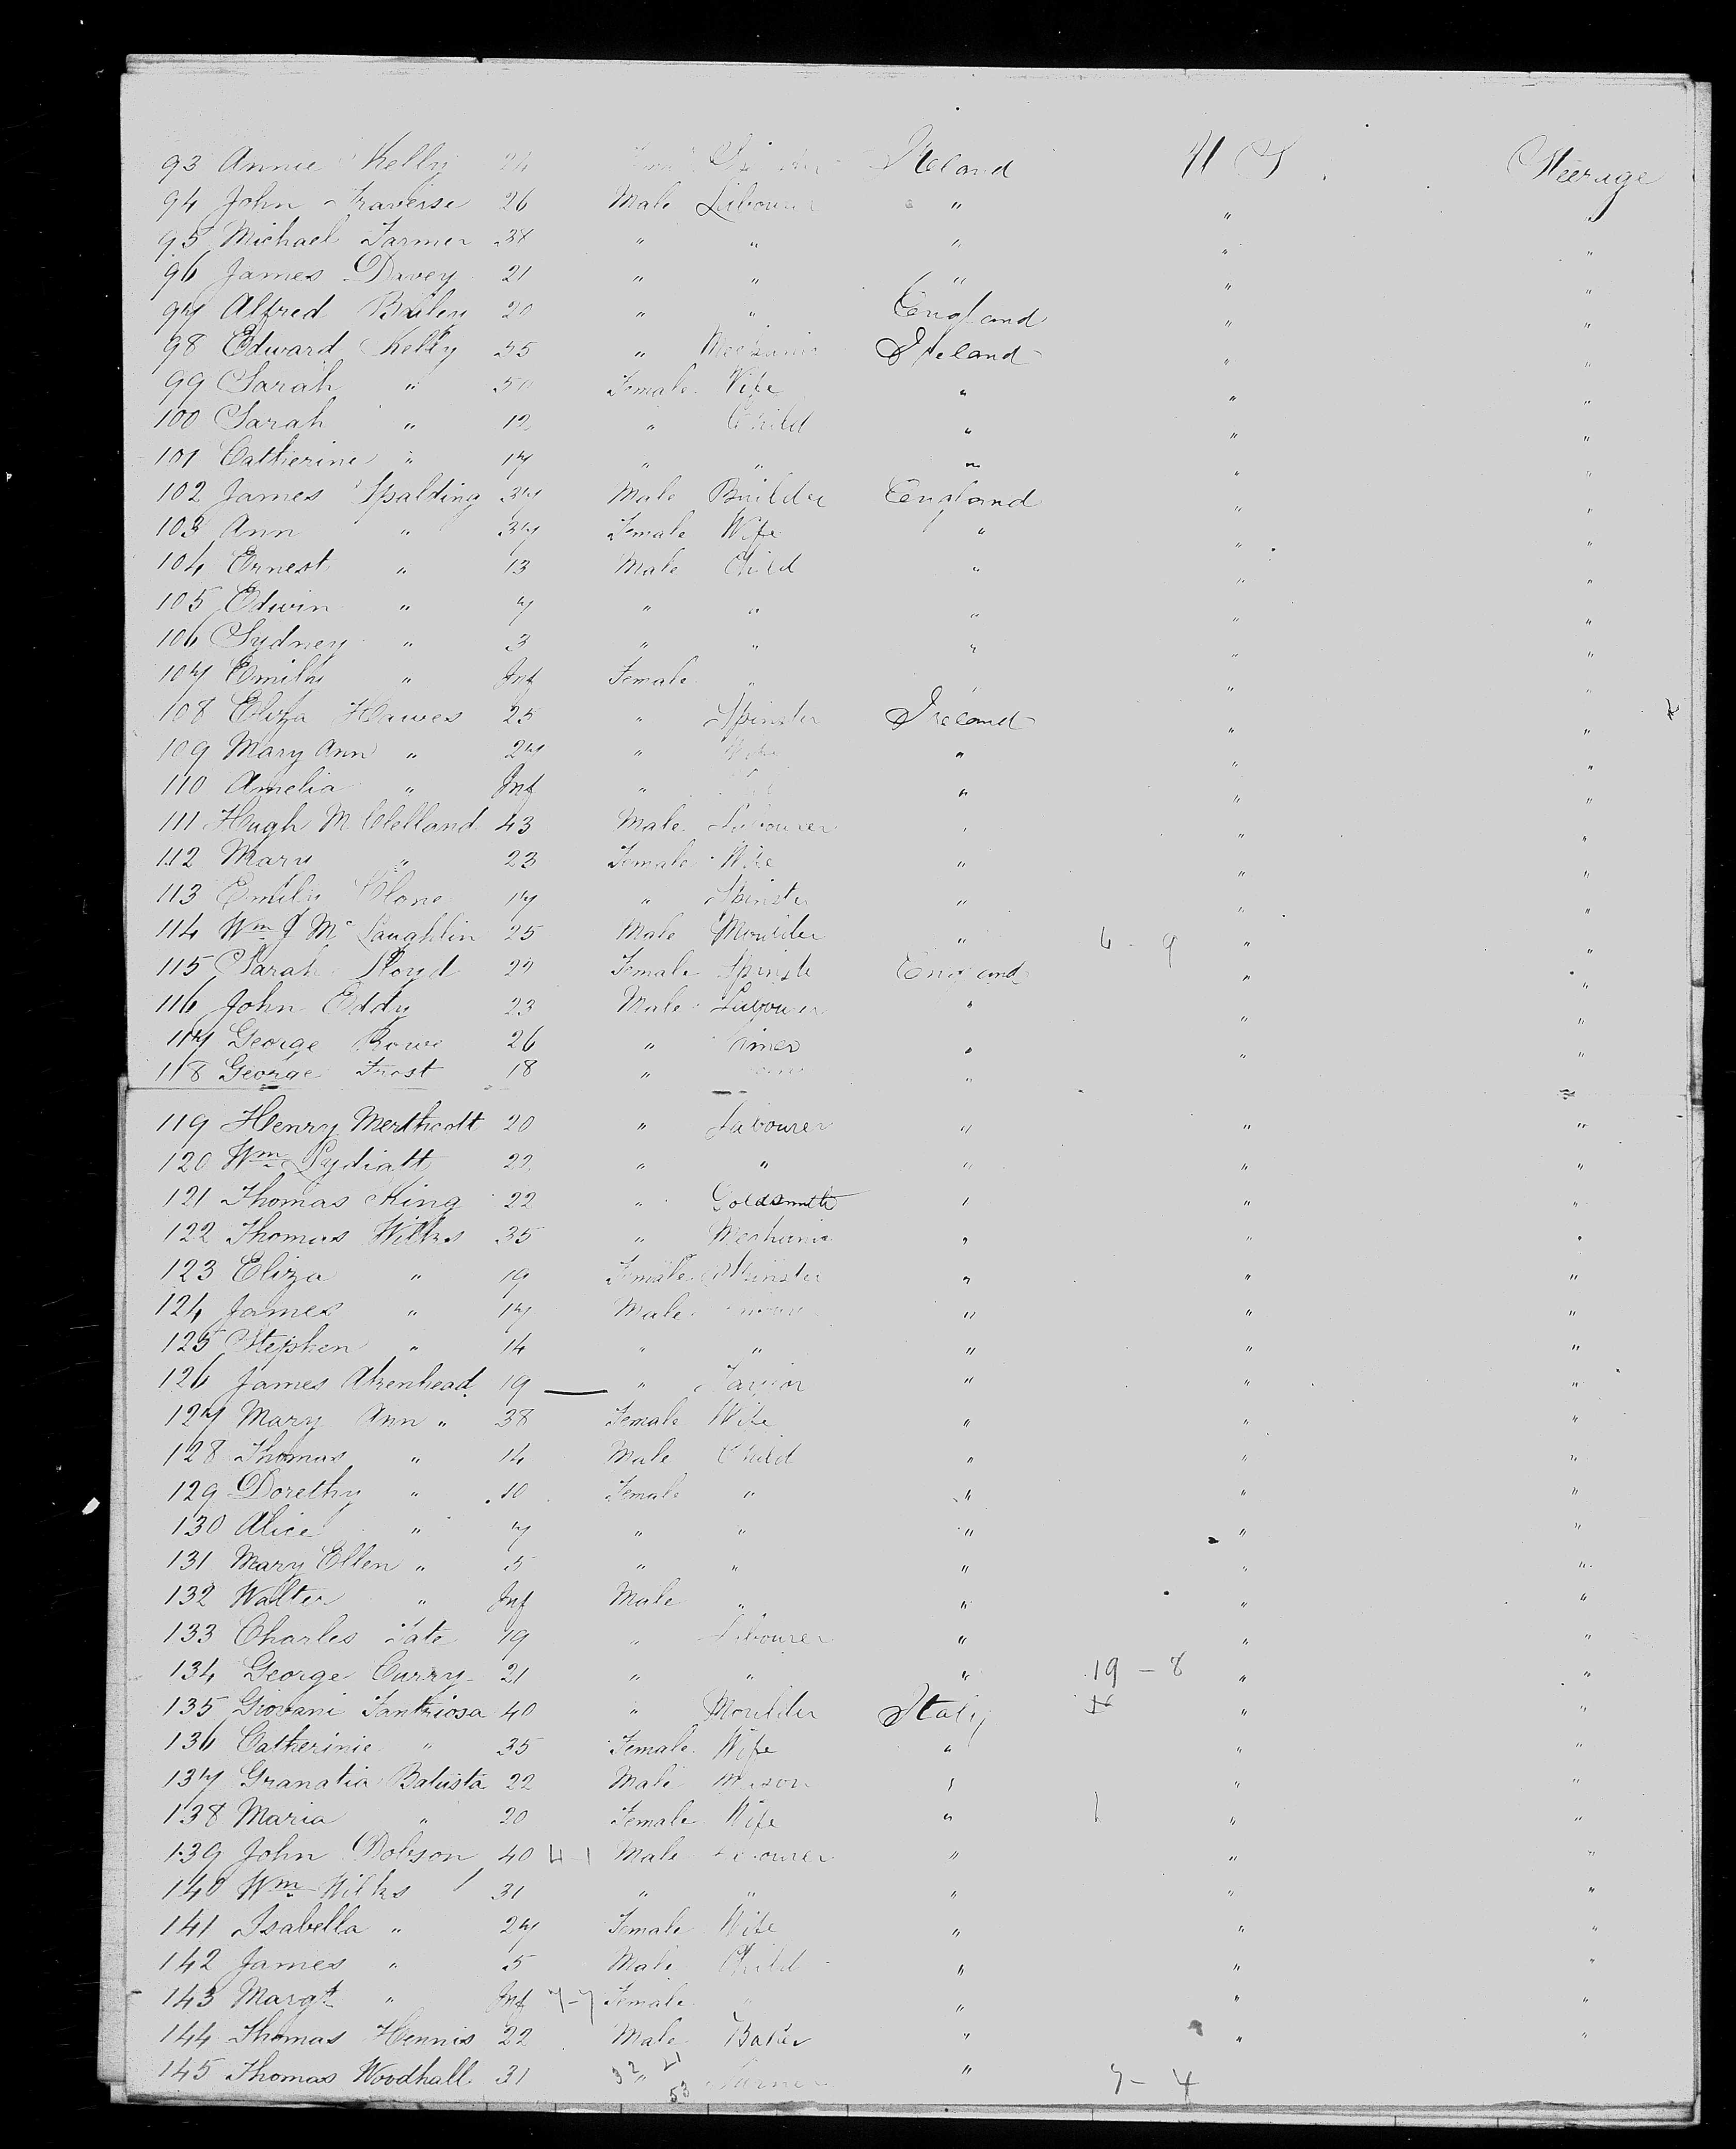 93 Annie Kelly 24 Ireland U S Steerage
94 John Traverse 26 Male Labourer " " "
95 Michael Farmer 38 " " " " "
96 James Davey 21 " " " " "
97 Alfred Bailey 20 " " England " "
98 Edward Kelly 55 " Mechanic Ireland " "
99 Sarah " 50 Female Wife " " "
100 Sarah " 12 " Child " " "
101 Catherine " 17 " " " " "
102 James Spalding 37 Male Builder England " "
103 Ann " 37 Female Wife " " "
104 Ernest " 13 Male Child " " "
105 Edwin " 7 " " " " "
106 Sydney " 3 " " " " "
107 Emily " Inf Female " " " "
108 Eliza Hawes 25 " Spinster Ireland " "
109 Mary Ann " 27 " " " "
110 Amelia " Inf " " " "
111 Hugh Mc Clelland 43 Male Labourer " " "
112 Mary " 23 Female Wife " " "
113 Emily Clane 17 " Spinster " " "
114 Wm J Mc Laughlin 25 Male Moulder " 6 - 9 " "
115 Sarah Lloyd 22 Female Spinste England " "
116 John Eddy 23 Male Labourer " " "
117 George Rowe 26 " Miner " " "
118 George Frost 18 " " " "
119 Henry Merthcott 20 " Labourer " " "
120 Wm Lydiatt 22 " " " " "
121 Thomas King 22 " Goldsmith " " "
122 Thomas Wilks 35 " Mechanic " " "
123 Eliza " 19 Female Spinster " " "
124 James " 17 Male " " "
125 Stephen " 14 " " " " "
126 James Akenhead 19 — " " " "
127 Mary Ann " 38 Female Wife " " "
128 Thomas " 14 Male Child " " "
129 Dorethy " 10 Female " " " "
130 Alice " 7 " " " " "
131 Mary Ellen " 5 " " " " "
132 Walter " Inf Male " " " "
133 Charles Tate 19 " Labourer " " "
134 George Curry 21 " " " 19 - 8 " "
135 Giovani Fantriosa 40 " Moulder Italy " "
136 Catherinie " 35 Female Wife " " "
137 Granatia Batista 22 Male Mason " " "
138 Maria " 20 Female Wife " " "
139 John Dobson 40 4-1 Male Labourer " " "
140 Wm Wilks 31 " " " " "
141 Isabella " 27 Female Wife " " "
142 James " 5 Male Child " " "
143 Margt " Inf 7-7 Female " " " "
144 Thomas Hennis 22 Male Baker " " "
145 Thomas Woodhall 31 32 " 21 53 " 7 - 4